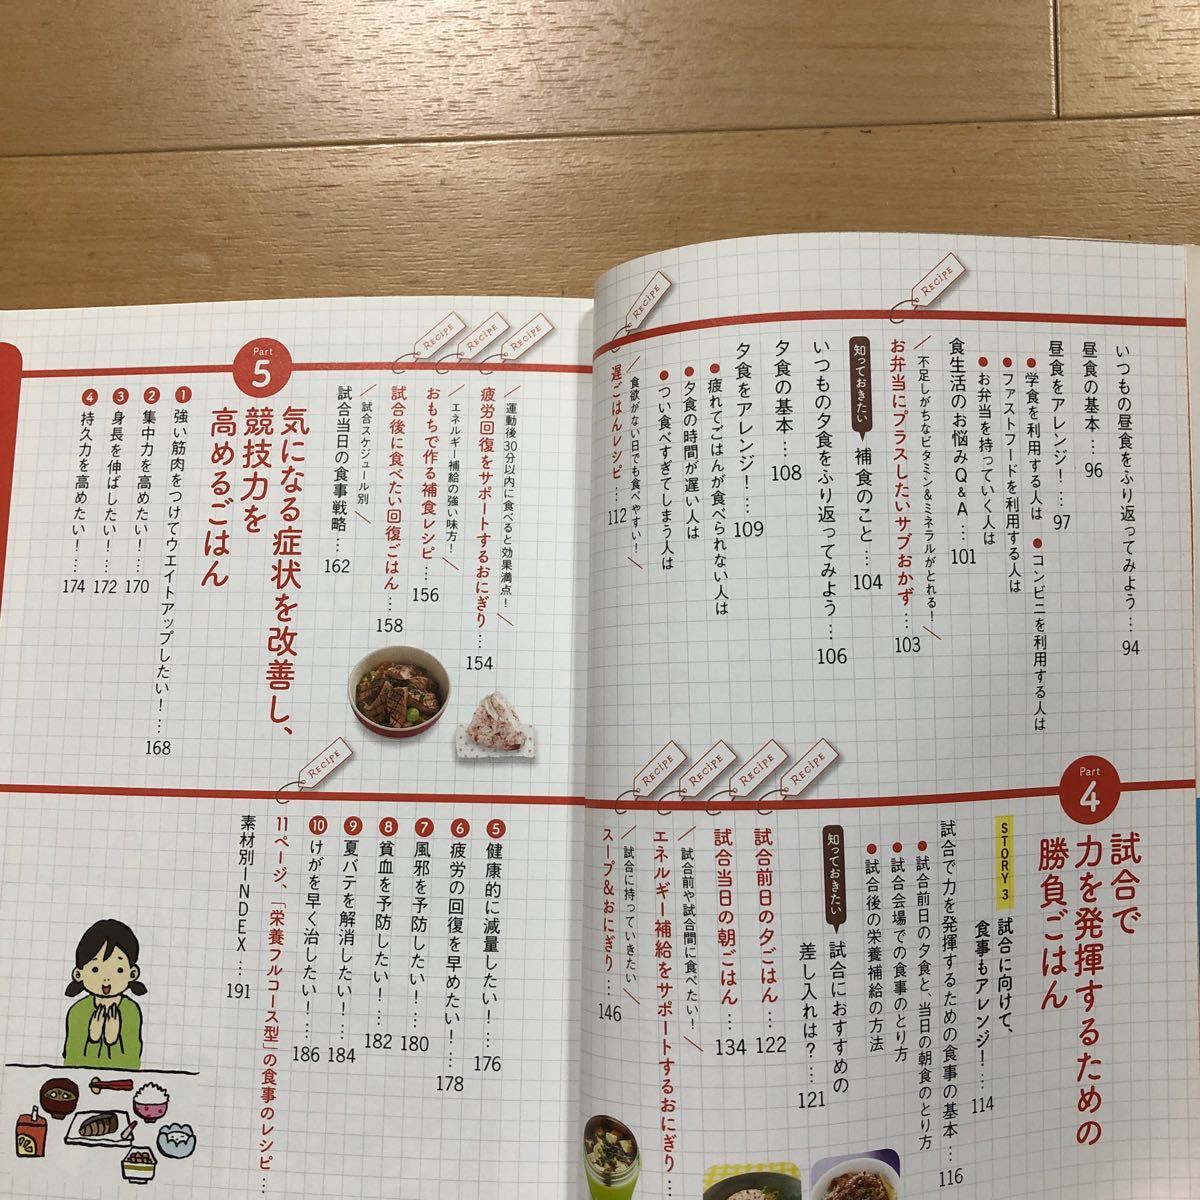 いつもの昼食をふり返ってみよう…94
昼食の基本…96
昼食をアレンジ！…97
●学食を利用する人は ●コンビニを利用する人は
●ファストフードを利用する人は
●お弁当を持っていく人は
食生活のお悩みQ&A…101
不足しがちなビタミン&ミネラルがとれる！
RECIPE
お弁当にプラスしたいサブおかず…103
知っておきたい 補食のこと…104
いつもの夕食をふり返ってみよう…106
夕食の基本…108
夕食をアレンジ！…109
●疲れてごはんが食べられない人は
●夕食の時間が遅い人は
●つい食べすぎてしまう人は
食欲がない日でも食べやすい！
RECIPE
遅ごはんレシピ…112
Part 4
試合で
力を発揮するための
勝負ごはん
STORY 3 試合に向けて、
食事もアレンジ！…114
試合で力を発揮するための食事の基本…116
●試合前日の夕食と、当日の朝食のとり方
●試合会場での食事のとり方
●試合後の栄養補給の方法
知っておきたい 試合におすすめの
差し入れは？…121
RECIPE
試合前日の夕ごはん…122
RECIPE
試合当日の朝ごはん…134
試合前や試合間に食べたい！
RECIPE
エネルギー補給をサポートするおにぎり…
試合に持っていきたい
RECIPE
スープ&おにぎり…146
運動後30分以内に食べると効果満点！
RECIPE
疲労回復をサポートするおにぎり…154
エネルギー補給の強い味方！
RECIPE
おもちで作る補食レシピ…156
RECIPE
試合後に食べたい回復ごはん…158
試合スケジュール別
試合当日の食事戦略…162
Part 5
気になる症状を改善し、
競技力を
高めるごはん
1 強い筋肉をつけてウエイトアップしたい！…168
2 集中力を高めたい！…170
3 身長を伸ばしたい！…172
4 持久力を高めたい！…174
5 健康的に減量したい！…176
6 疲労の回復を早めたい！…178
7 風邪を予防したい！…180
8 貧血を予防したい！…182
9 夏バテを解消したい！…184
10 けがを早く治したい！…186
RECIPE
11ページ、「栄養フルコース型」の食事のレシピ…
素材別INDEX…191